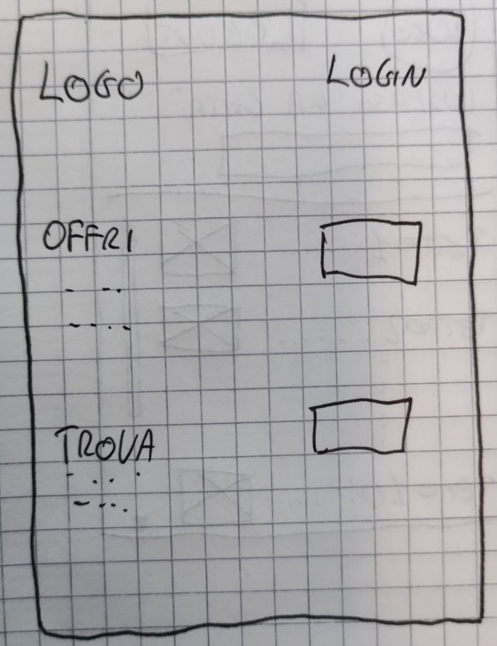 LOGO LOGIN
OFFRI
TROVA